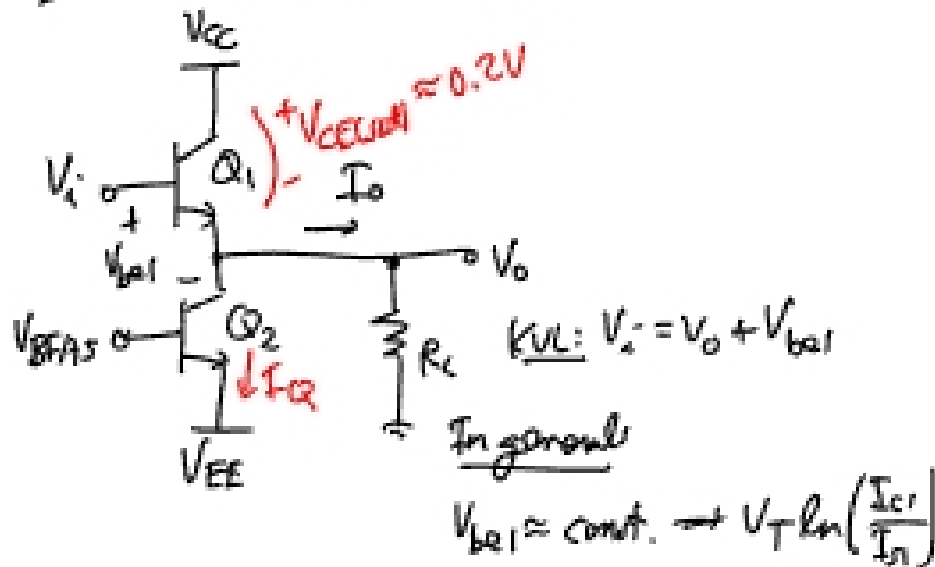 Vcc
+ VCE(sat) ≈ 0.2V
-
Vi
Q1
Io
+
Vbe1
-
Vo
VBIAS
Q2
RL
KVL: Vi = Vo + Vbe1
IQ
VEE
In general
Vbe1 ≈ const. → VT ln(Ic1/Is1)